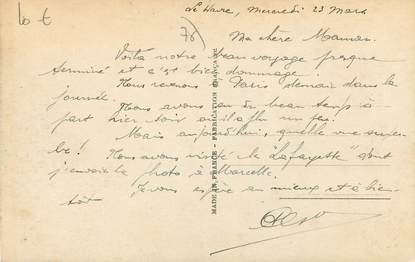 Le Havre, Mercredi 23 Mars
10 €
76)
Ma chère Maman.
Voilà notre beau voyage presque
terminé et c'est bien dommage.
Nous revenons à Paris demain dans la
journée.
Nous avons eu du beau temps à
part hier soir où il a plu un peu.
Mais aujourd'hui, quelle vue super-
be! Nous avons visité le "Lafayette" dont
j'envoie la photo à Marcelle.
Je vous espère au mieux et à bien-
tôt
MADE IN FRANCE - FABRICATION FRANÇAISE